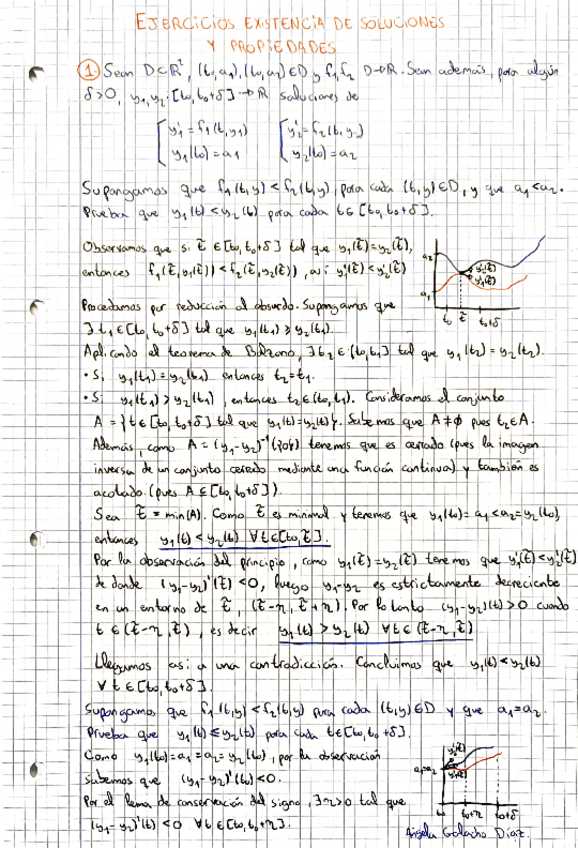 EJERCICIOS EXISTENCIA DE SOLUCIONES
Y PROPIEDADES
① Sean D⊂ℝ², (t₀,a₁), (t₀,a₂)∈D y f₁,f₂ D→ℝ. Sean además, para algún
δ>0, y₁,y₂: [t₀,t₀+δ]→ℝ soluciones de
y₁'=f₁(t,y₁) y₂'=f₂(t,y₂)
y₁(t₀)=a₁ y₂(t₀)=a₂
Supongamos que f₁(t,y)<f₂(t,y), para cada (t,y)∈D, y que a₁<a₂.
Prueba que y₁(t)<y₂(t) para cada t∈[t₀,t₀+δ].
Observamos que si t̃∈[t₀,t₀+δ] tal que y₁(t̃)=y₂(t̃),
entonces f₁(t̃,y₁(t̃))<f₂(t̃,y₂(t̃)), así y₁'(t̃)<y₂'(t̃)
a₂ a₁ y₂'(t̃) y₁'(t̃) t₀ t̃ t₀+δ
Procedamos por reducción al absurdo. Supongamos que
∃t₁∈[t₀,t₀+δ] tal que y₁(t₁)≥y₂(t₁).
Aplicando el teorema de Bolzano, ∃t₂∈(t₀,t₁] tal que y₁(t₂)=y₂(t₂).
• Si y₁(t₁)=y₂(t₁) entonces t₂=t₁.
• Si y₁(t₁)>y₂(t₁), entonces t₂∈(t₀,t₁). Consideramos el conjunto
A={t∈[t₀,t₀+δ] tal que y₁(t)=y₂(t)}. Sabemos que A≠∅ pues t₂∈A.
Además, como A=(y₁-y₂)⁻¹({0}) tenemos que es cerrado (pues la imagen
inversa de un conjunto cerrado mediante una función continua) y también es
acotado (pues A⊆[t₀,t₀+δ]).
Sea t̃=min(A). Como t̃ es minimal y tenemos que y₁(t₀)=a₁<a₂=y₂(t₀),
entonces y₁(t)<y₂(t) ∀t∈[t₀,t̃].
Por la observación del principio, como y₁(t̃)=y₂(t̃) tenemos que y₁'(t̃)<y₂'(t̃)
de donde (y₁-y₂)'(t̃)<0, luego y₁-y₂ es estrictamente decreciente
en un entorno de t̃, (t̃-η,t̃+η). Por lo tanto (y₁-y₂)(t)>0 cuando
t∈(t̃-η,t̃), es decir y₁(t)>y₂(t) ∀t∈(t̃-η,t̃)
Llegamos así a una contradicción. Concluimos que y₁(t)<y₂(t)
∀t∈[t₀,t₀+δ].
Supongamos que f₁(t,y)<f₂(t,y) para cada (t,y)∈D y que a₁=a₂.
Prueba que y₁(t)≤y₂(t) para cada t∈[t₀,t₀+δ].
Como y₁(t₀)=a₁=a₂=y₂(t₀), por la observación
sabemos que (y₁-y₂)'(t₀)<0.
Por el lema de conservación del signo, ∃η>0 tal que
(y₁-y₂)'(t)<0 ∀t∈[t₀,t₀+η].
a₁=a₂ t₀ t₀+η t₀+δ
Ángela Golacho Díaz.